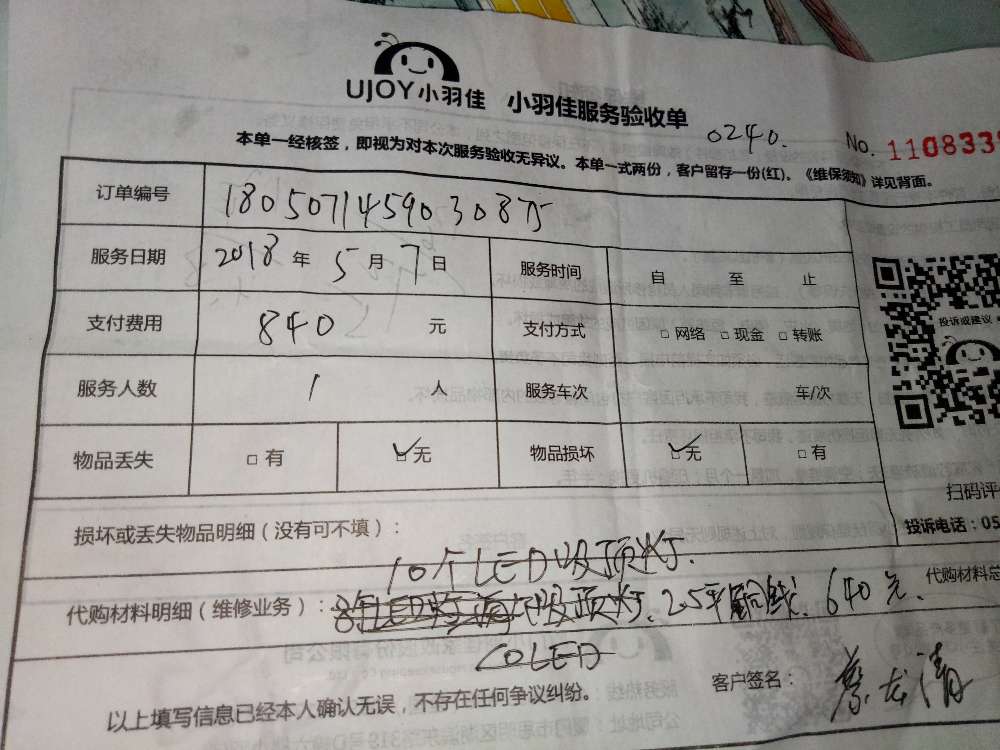 UJOY小羽佳 小羽佳服务验收单
0240. No. 1108335
本单一经核签，即视为对本次服务验收无异议。本单一式两份，客户留存一份(红)。《维保须知》详见背面。
订单编号 180507145903087
服务日期 2018 年 5 月 7 日 服务时间 自 至 止
支付费用 840 元 支付方式 □ 网络 □ 现金 □ 转账
投诉或建议
服务人数 1 人 服务车次 车/次
物品丢失 □ 有 ☑ 无 物品损坏 ☑ 无 □ 有
扫码评
损坏或丢失物品明细（没有可不填）：
投诉电话：05
10个LED吸顶灯.
代购材料明细（维修业务）： 吸顶灯. 2.5平铜线. 640元. 代购材料总
COLED
客户签名： 蔡龙清
以上填写信息已经本人确认无误，不存在任何争议纠纷。